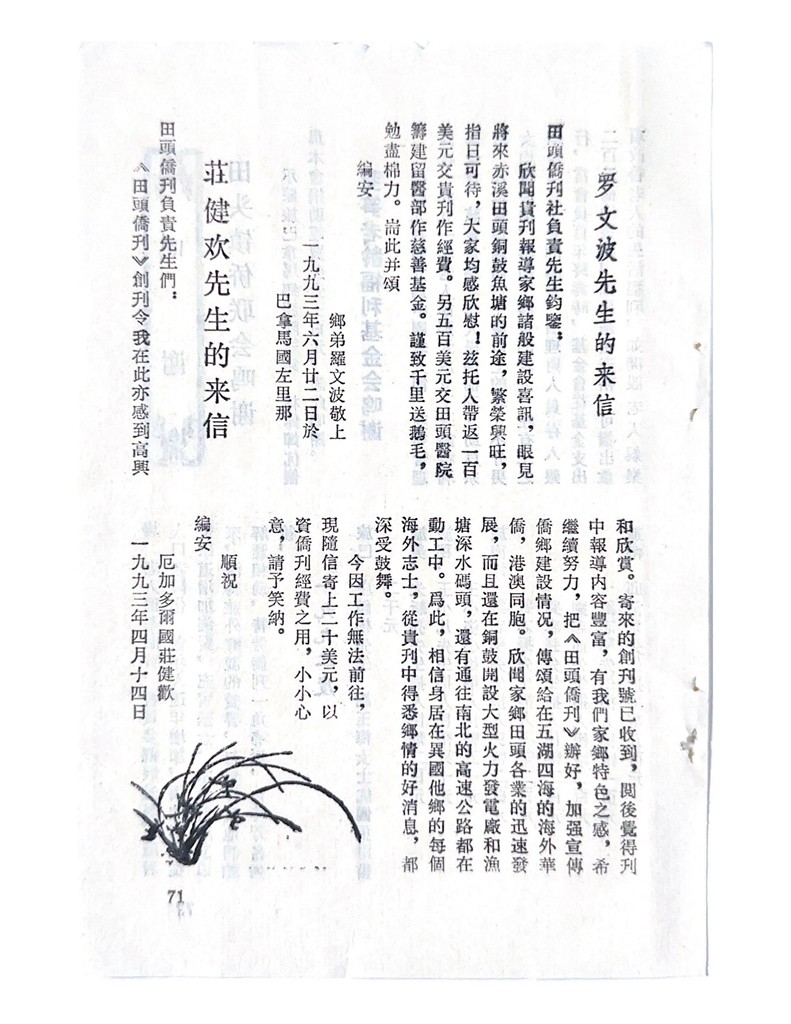 罗文波先生的来信
田頭僑刊社負責先生鈞鑒：
欣聞貴刊報導家鄉諸般建設喜訊，眼見
將來赤溪田頭銅鼓魚塘的前途，繁榮興旺，
指日可待，大家均感欣慰！兹托人帶返一百
美元交貴刊作經費。另五百美元交田頭醫院
籌建留醫部作慈善基金。謹致千里送鵝毛，
勉盡棉力。耑此并頌
編安
鄉弟羅文波敬上
一九九三年六月廿二日於
巴拿馬國左里那
荘健欢先生的来信
田頭僑刊負責先生們：
《田頭僑刊》創刊令我在此亦感到高興
和欣賞。寄來的創刊號已收到，閱後覺得刊
中報導内容豐富，有我們家鄉特色之感，希
繼續努力，把《田頭僑刊》辦好，加强宣傳
僑鄉建設情况，傳頌給在五湖四海的海外華
僑，港澳同胞。欣聞家鄉田頭各業的迅速發
展，而且還在銅鼓開設大型火力發電廠和漁
塘深水碼頭，還有通往南北的高速公路都在
動工中。爲此，相信身居在異國他鄉的每個
海外志士，從貴刊中得悉鄉情的好消息，都
深受鼓舞。
今因工作無法前往，
現隨信寄上二十美元，以
資僑刊經費之用，小小心
意，請予笑納。
順祝
編安
厄加多爾國莊健歡
一九九三年四月十四日
71